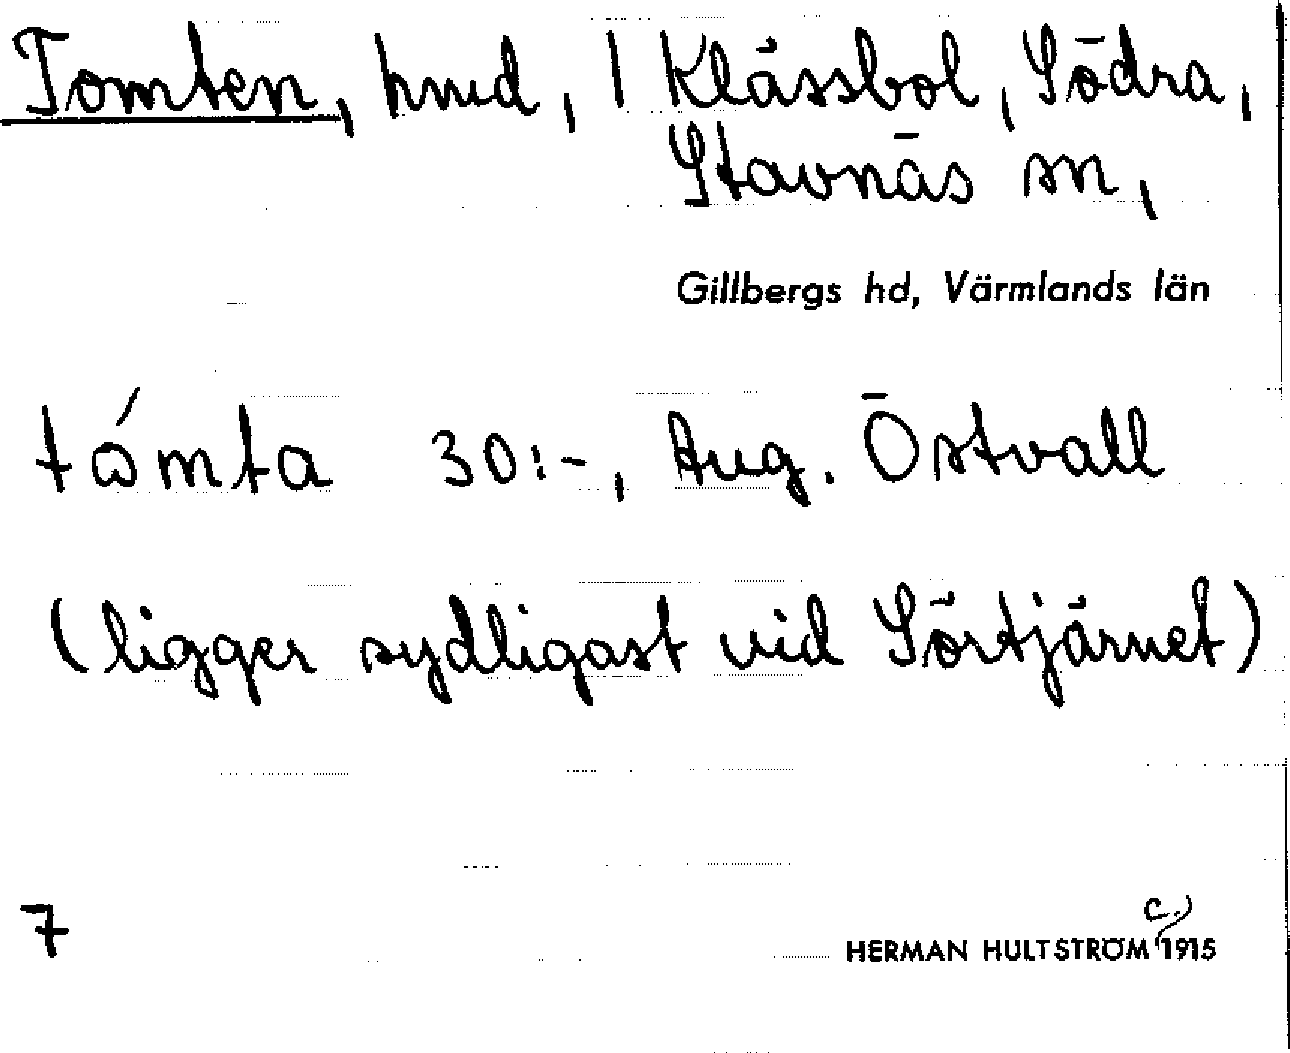 Tomten, hmd, 1 Klässbol, Södra,
Stavnäs sn,
Gillbergs hd, Värmlands län
tómta 30:-, Aug. Östvall
(ligger sydligast vid Sörtjärnet)
7
c.)
HERMAN HULTSTRÖM 1915